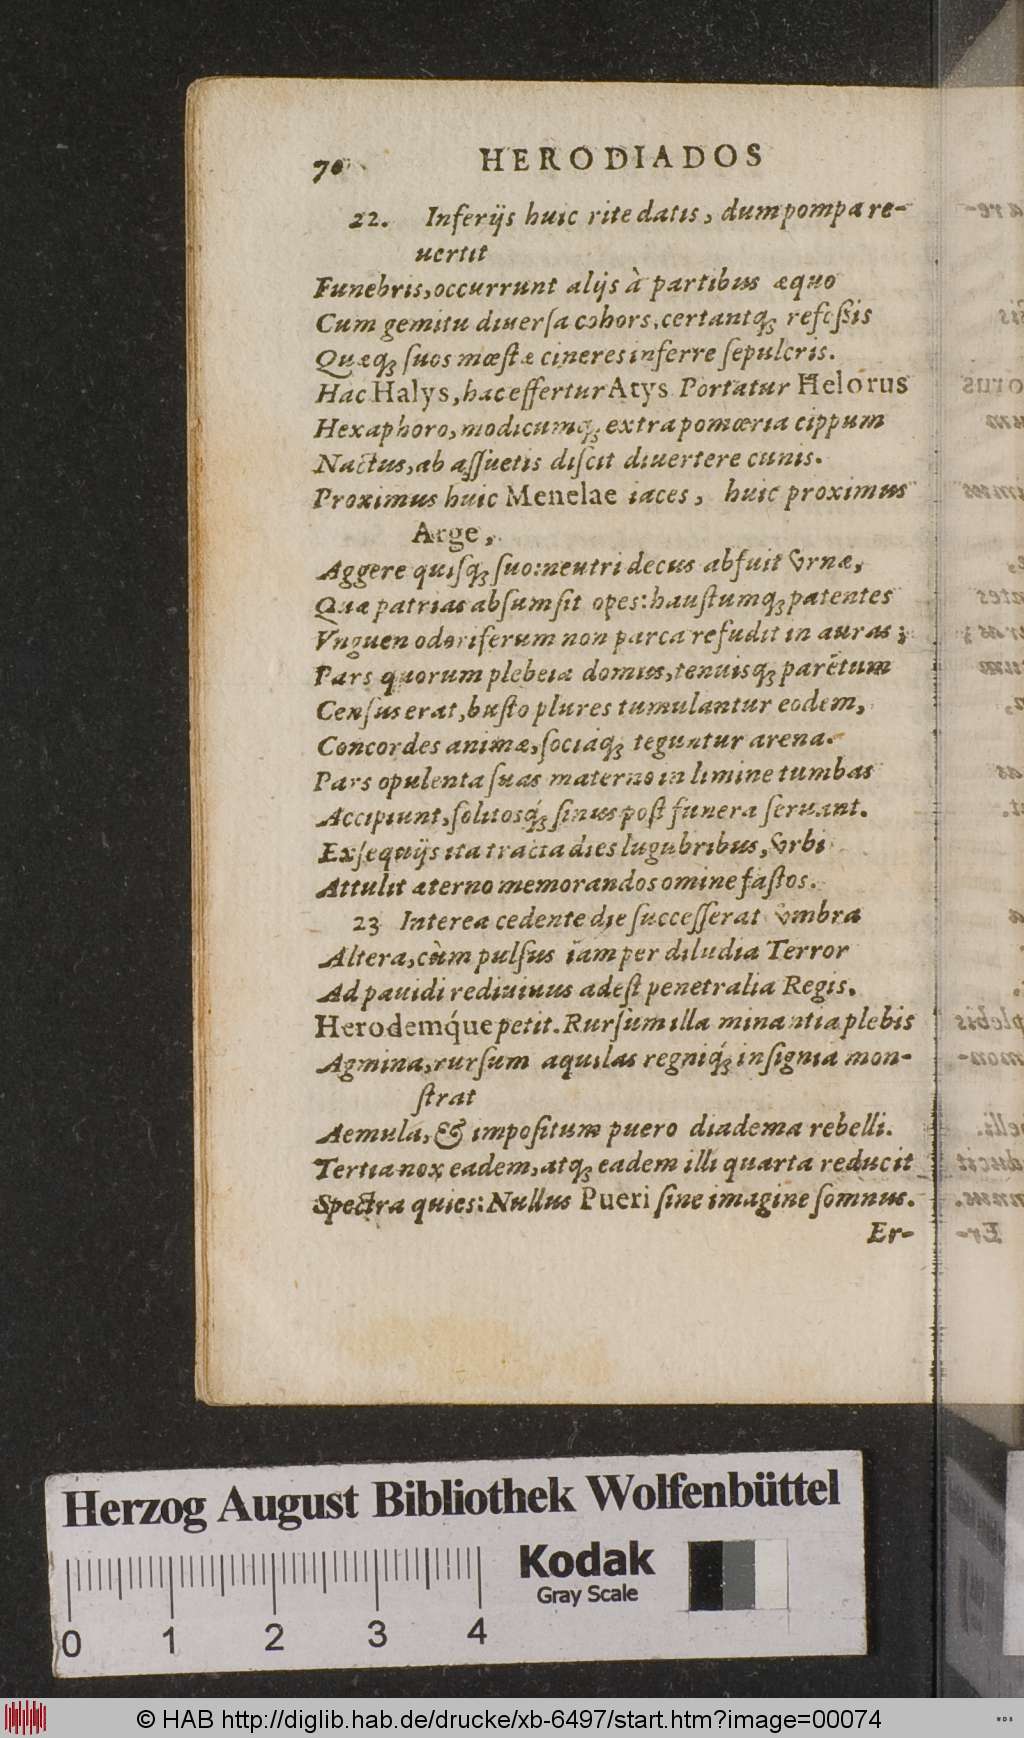 70 HERODIADOS
22. Inferijs huic rite datis, dum pompa re-
uertit
Funebris, occurrunt alijs à partibus æquo
Cum gemitu diuersa cohors, certantq́; refoßis
Quæq́; suos mœstæ cineres inferre sepulcris.
Hac Halys, hac effertur Atys Portatur Helorus
Hexaphoro, modicumq́; extra pomœria cippum
Nactus, ab assuetis discit diuertere cunis.
Proximus huic Menelae iaces, huic proximus
Arge,
Aggere quisq́; suo: neutri decus abfuit vrnæ,
Quæ patrias absumsit opes: haustumq́; patentes
Vnguen odoriferum non parca refudit in auras;
Pars quorum plebeia domus, tenuisq́; parētum
Census erat, busto plures tumulantur eodem,
Concordes animæ, sociáq́; teguntur arena.
Pars opulenta suas materno in limine tumbas
Accipiunt, solitosq́; sinus post funera seruant.
Exsequijs ita tracta dies lugubribus, vrbi
Attulit æterno memorandos omine fastos.
23 Interea cedente die successerat vmbra
Altera, cùm pulsus iam per diludia Terror
Ad pauidi rediuiuus adest penetralia Regis.
Herodemq́ue petit. Rursum illa minantia plebis
Agmina, rursum aquilas regniq́; insignia mon-
strat
Aemula, & impositum puero diadema rebelli.
Tertia nox eadem, atq́; eadem illi quarta reducit
Spectra quies: Nullus Pueri sine imagine somnus.
Er-
Herzog August Bibliothek Wolfenbüttel
Kodak
Gray Scale
0 1 2 3 4
© HAB http://diglib.hab.de/drucke/xb-6497/start.htm?image=00074